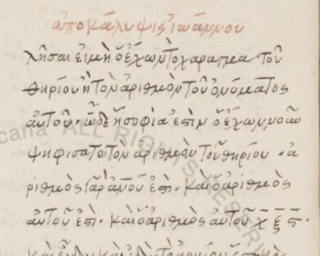 ἀποκάλυψις ἰωάννου
λῆσαι εἰμὴ ὁ ἔχων το χαραγμα τοῦ
θηρίου ἢ τὸν ἀριθμὸν τοῦ ὀνόματος
αὐτοῦ· ὧδε ἡ σοφία ἐστὶν ὁ ἔχων νοῦν
ψηφισατο τὸν ἀριθμὸν τοῦ θηρίου· ἀ
ριθμὸς γὰρ ἀνου ἐστὶ· καὶ ὁ ἀριθμὸς
αὐτοῦ ἐστὶ· καὶ ὁ ἀριθμος αὐτοῦ χ ξ ϛ·